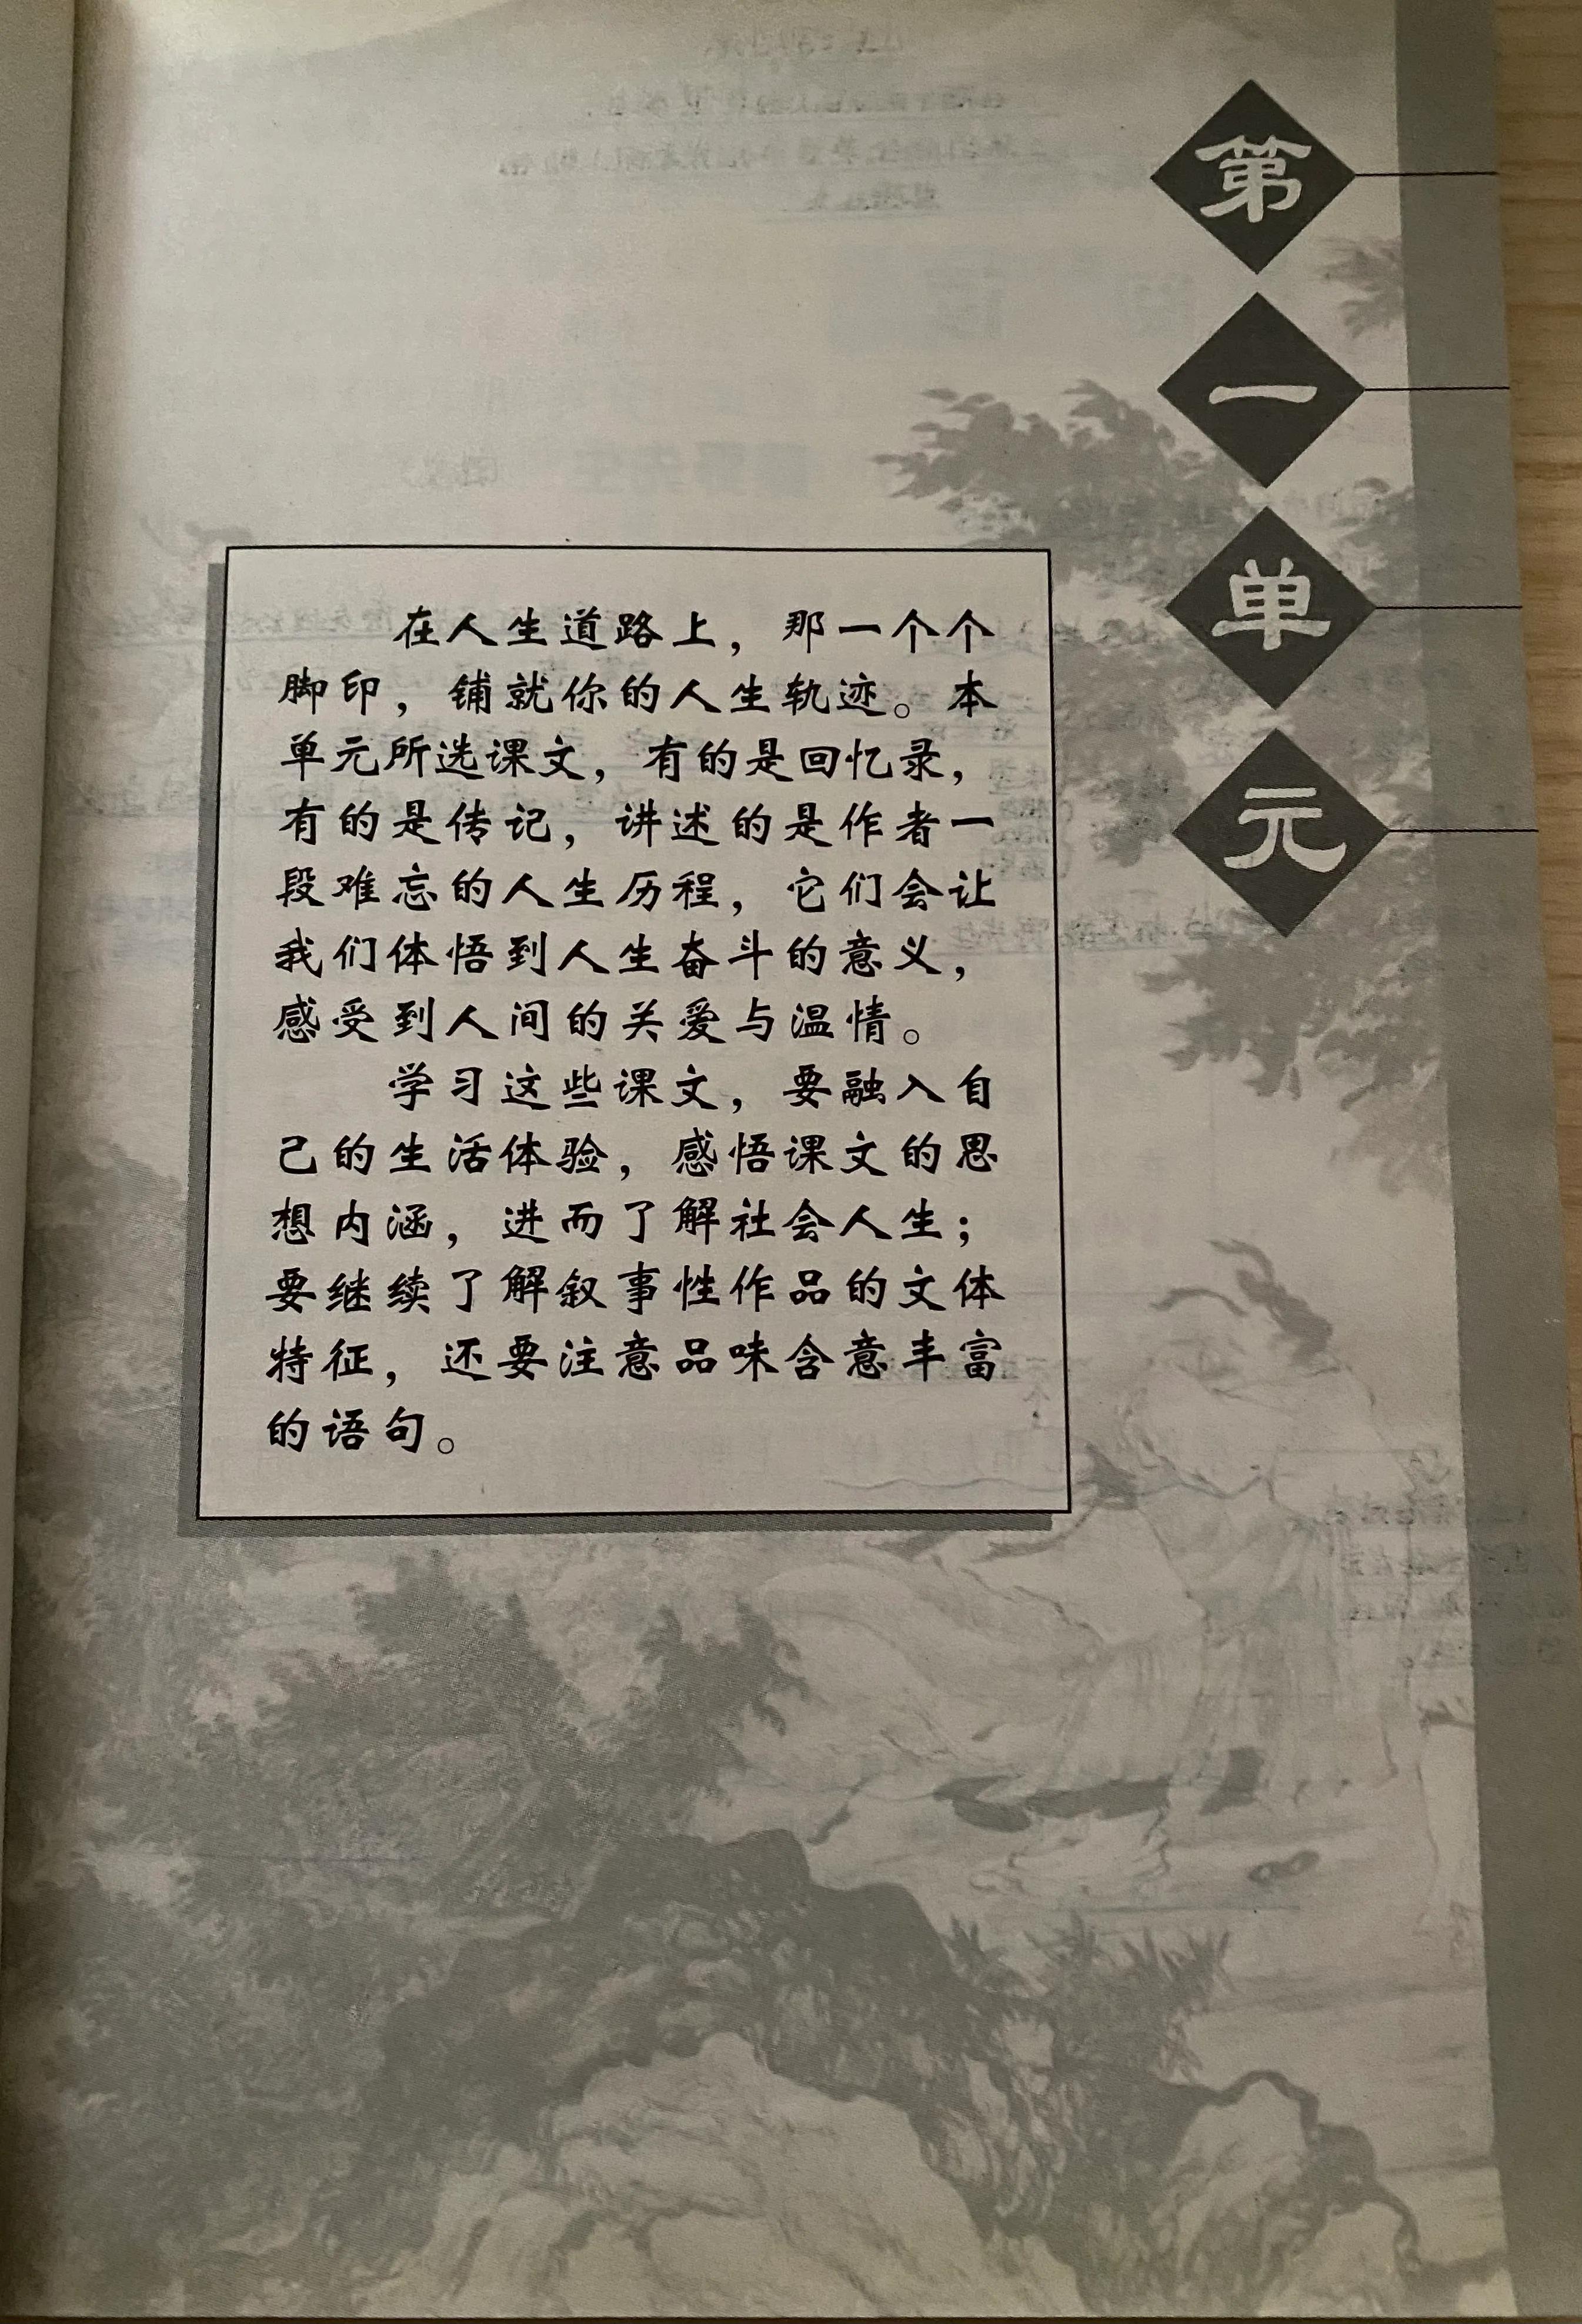 第一单元
在人生道路上，那一个个
脚印，铺就你的人生轨迹。本
单元所选课文，有的是回忆录，
有的是传记，讲述的是作者一
段难忘的人生历程，它们会让
我们体悟到人生奋斗的意义，
感受到人间的关爱与温情。
学习这些课文，要融入自
己的生活体验，感悟课文的思
想内涵，进而了解社会人生；
要继续了解叙事性作品的文体
特征，还要注意品味含意丰富
的语句。